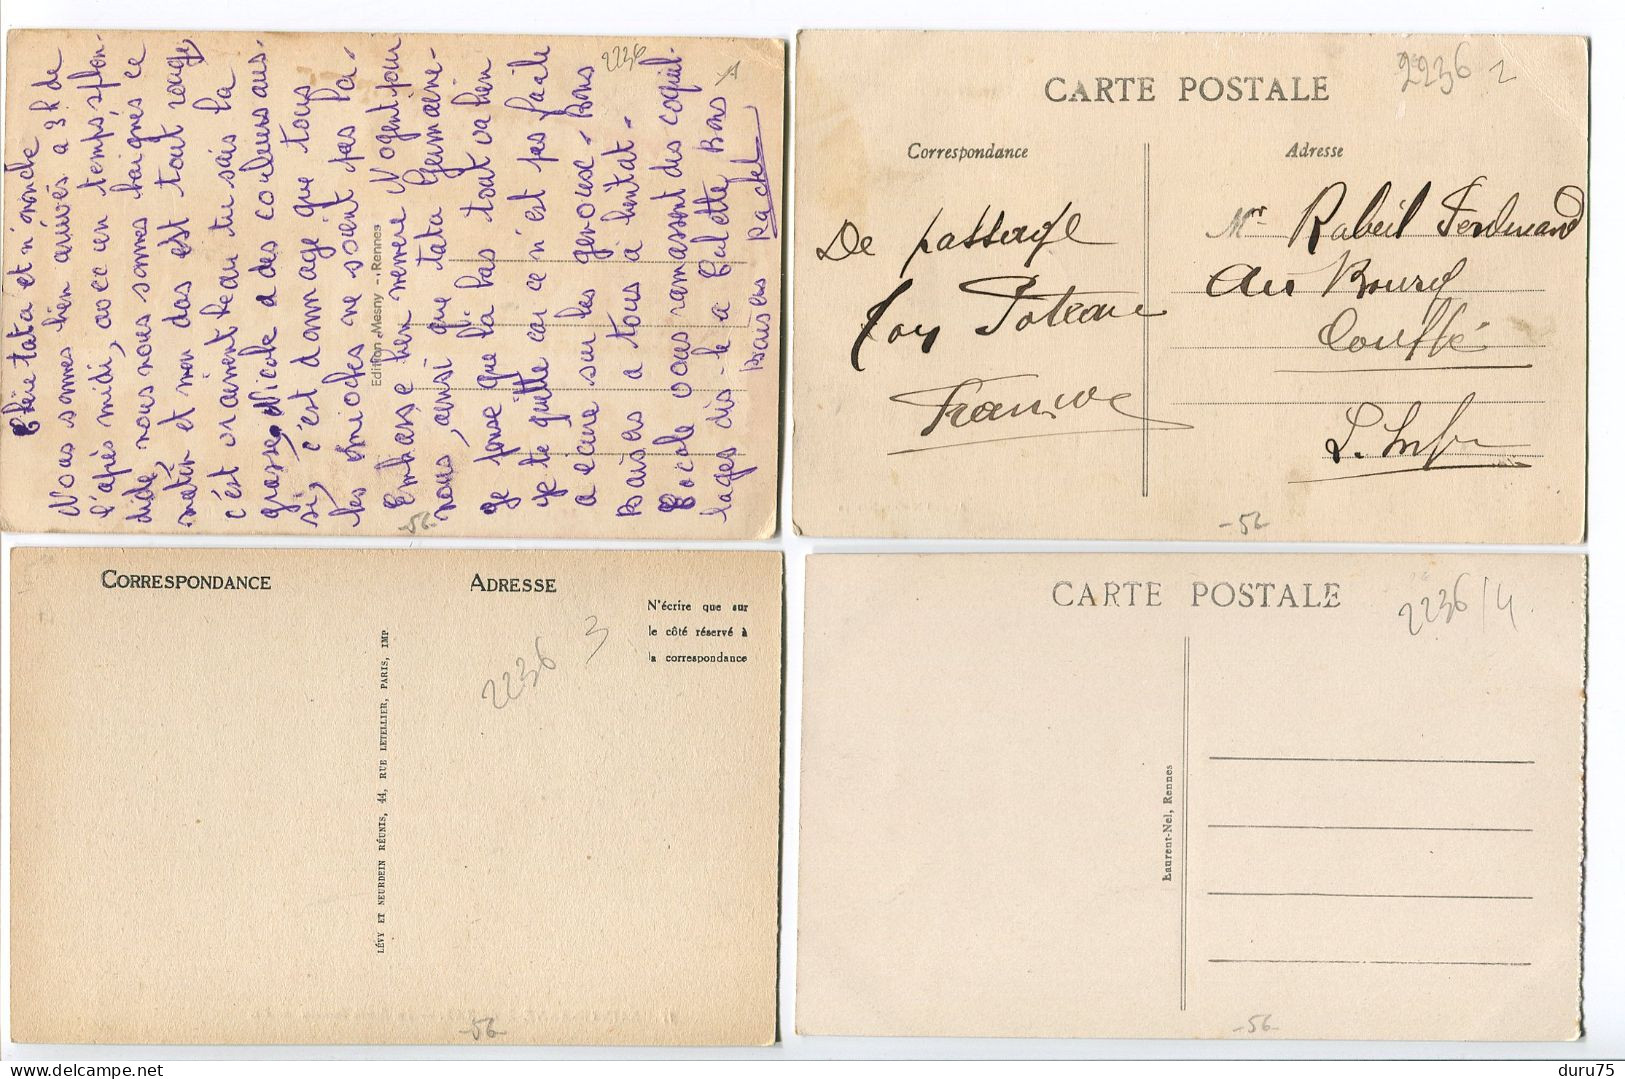 Chère tata et n'noncle
Nous sommes bien arrivés à 3h de
l'après midi, avec un temps splen-
dide, nous nous sommes baignés ce
matin et mon dos est tout rouge,
c'est vraiment beau tu sais la
grosse Nicole a des couleurs aus-
si, c'est dommage que tous
les mioches ne soient pas la.
Embrasse bien mémère Nogent pour
nous, ainsi que tata Germaine
je pense que là bas tout va bien
Je te quitte car ce n'est pas facile
a écrire sur les genoux. Bons
Baisers a tous à bientôt.
vous ramassent des coquil-
lages dis-le a Bons
baisers Rachel
Edition Mesny - Rennes
2236
1
-56-
CARTE POSTALE
2236 2
Correspondance
Adresse
De passage
Mr Rabeil Ferdinand
Au Bourg
Couffé
L. Infre
-56-
CORRESPONDANCE
ADRESSE
N'écrire que sur
le côté réservé à
la correspondance
2236 3
LÉVY ET NEURDEIN RÉUNIS, 44, RUE LETELLIER, PARIS, IMP
-56-
CARTE POSTALE
2236/4
Laurent-Nel, Rennes
-56-
duru75